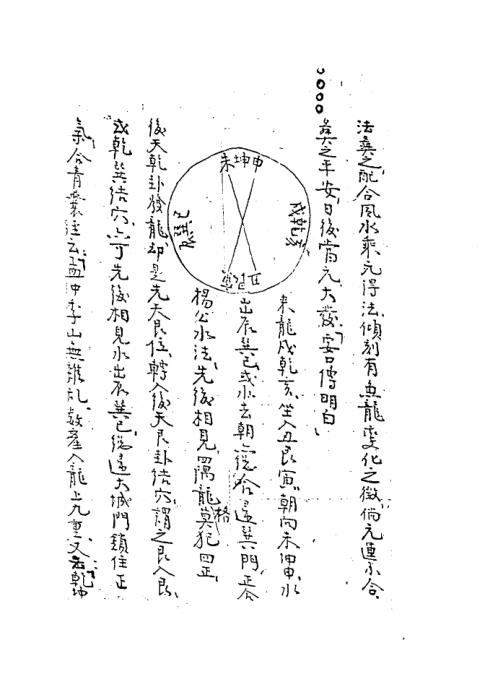 法奠之配合風水乘元得法傾刻有魚龍變化之徵倘元運不合
奠之平安日後當元大發 口傳明白
未坤申
戌乾亥
丑艮寅
辰巽巳
來龍戌乾亥坐入丑艮寅朝向未坤申水
出辰巽巳或水去朝 合 巽門正合
楊公水法先後相見四隅龍格莫犯四正
後天乾卦發龍却是先天艮位轉入後天艮卦結穴謂之艮入艮
或乾巽結穴亦可先後相見水出辰巽巳 大城門鎖住正
氣合青囊 云孟仲季山無雜亂數產人龍上九重又云乾坤